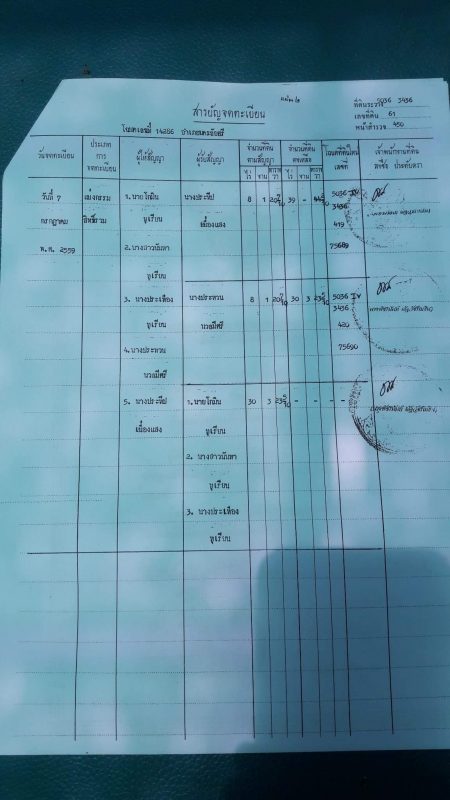 สารบัญจดทะเบียน
ที่ดินระวาง 5036 3436
เลขที่ดิน 61
หน้าสำรวจ 450
โฉนดเลขที่ 14256 อำเภอ
วันจดทะเบียน ประเภทการจดทะเบียน ผู้ให้สัญญา ผู้รับสัญญา จำนวนที่ดินตามสัญญา จำนวนที่ดินคงเหลือ โฉนดที่ดินใหม่เลขที่ เจ้าพนักงานที่ดินลงชื่อ ประทับตรา
ไร่ งาน ตารางวา ไร่ งาน ตารางวา
วันที่ 7 แบ่งกรรม 1. นายโกมิน นางประทีป 8 1 39 - 5036 IV
กรกฎาคม สิทธิ์รวม ชูเรียน เมืองแสง 3436
419
พ.ศ. 2559 2. นางสาวนันทา 75689
ชูเรียน
3. นางประเทือง นางประทวน 8 1 30 3 5036 IV
3436
ชูเรียน นวลมีศรี 420
4. นางประทวน 75690
นวลมีศรี
5. นางประทีป 1. นายโกมิน 30 3 - - - -
เมืองแสง ชูเรียน
2. นางสาวนันทา
ชูเรียน
3. นางประเทือง
ชูเรียน